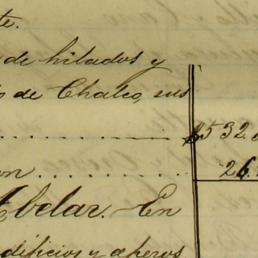 te.
de hilados y
de Chalco, sus
$532.
26.
Abelar. En
edificios y aperos